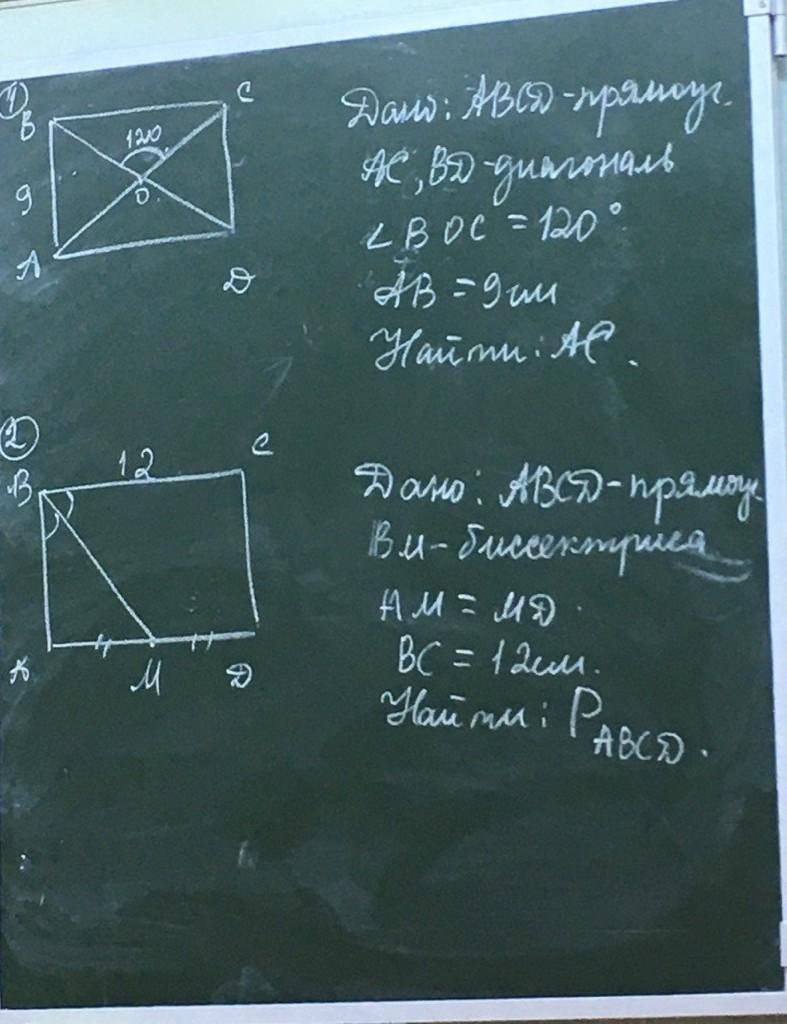 1
B
C
120
9
O
A
D
Дано: ABCD-прямоуг.
AC, BD-диагональ
∠BOC = 120°
AB = 9см
Найти: AC.
2
12
B
C
A
M
D
Дано: ABCD-прямоуг
BM-биссектриса
AM = MD.
BC = 12см.
Найти: P ABCD.